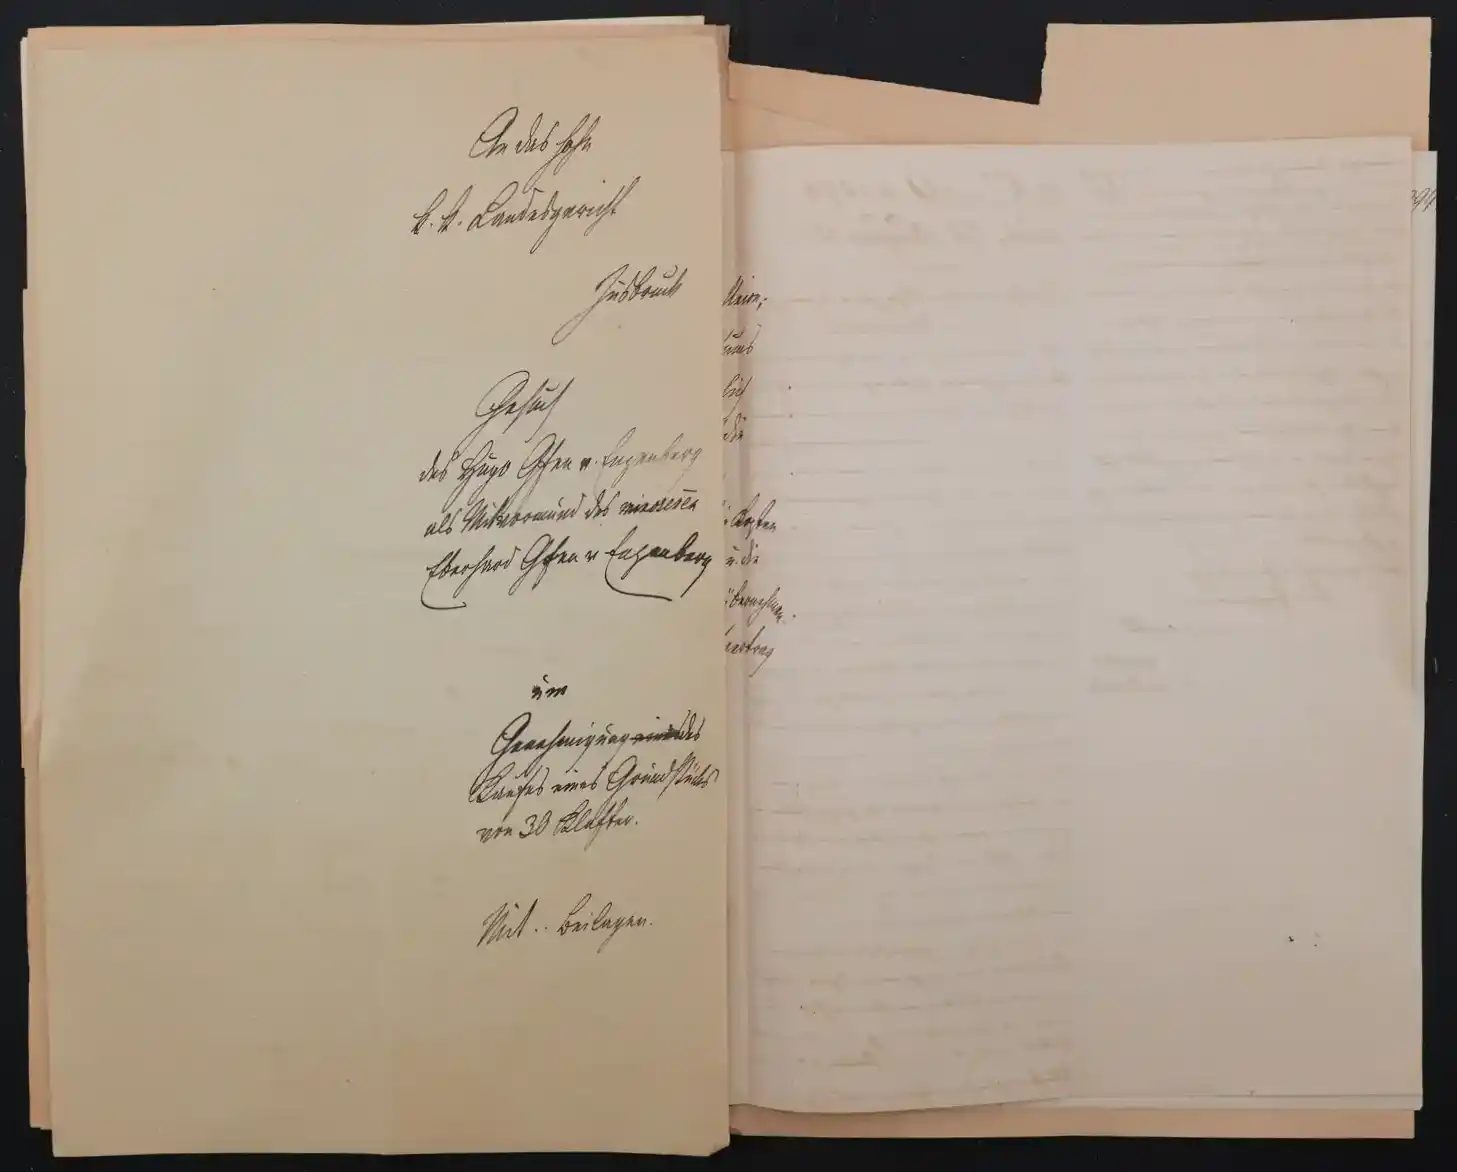 An das hohe
k. k. Landesgericht
Insbruck
Gesuch
des Hugo Gfen v. Enzenberg
als Mitvormund des minderen
Eberhard Gfen v Enzenberg
um
Genehmigung eines des
Kaufes eines Grundstücks
von 30 Klafter.
Mit .. Beilagen.
die
Kosten
u. die
übernehmen.